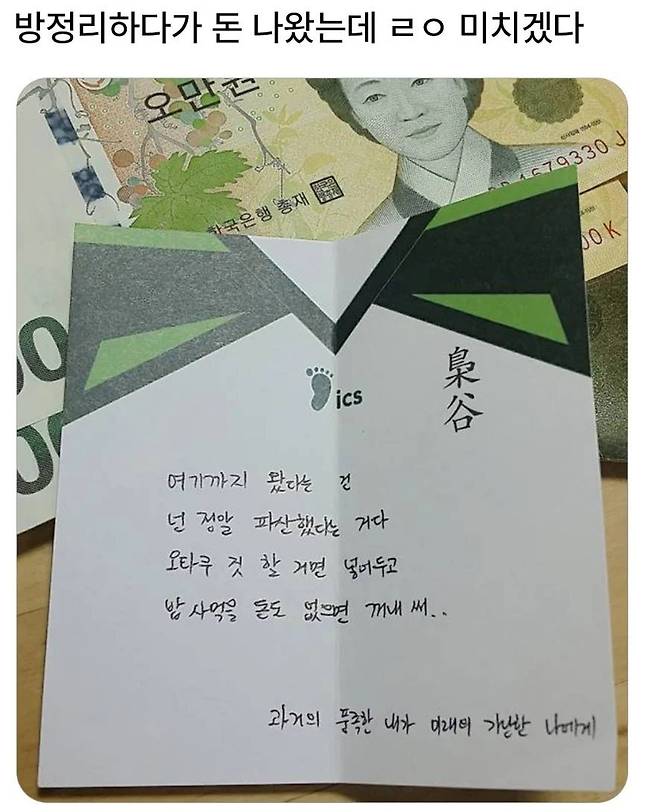 방정리하다가 돈 나왔는데 ㄹㅇ 미치겠다
오만원
한국은행 총재
1579330 J
00 K
00
00
ics
梟谷
여기까지 왔다는 건
넌 정말 파산했다는 거다
오타쿠 짓 할 거면 넣어두고
밥 사먹을 돈도 없으면 꺼내 써..
과거의 풍족한 내가 미래의 가난한 나에게